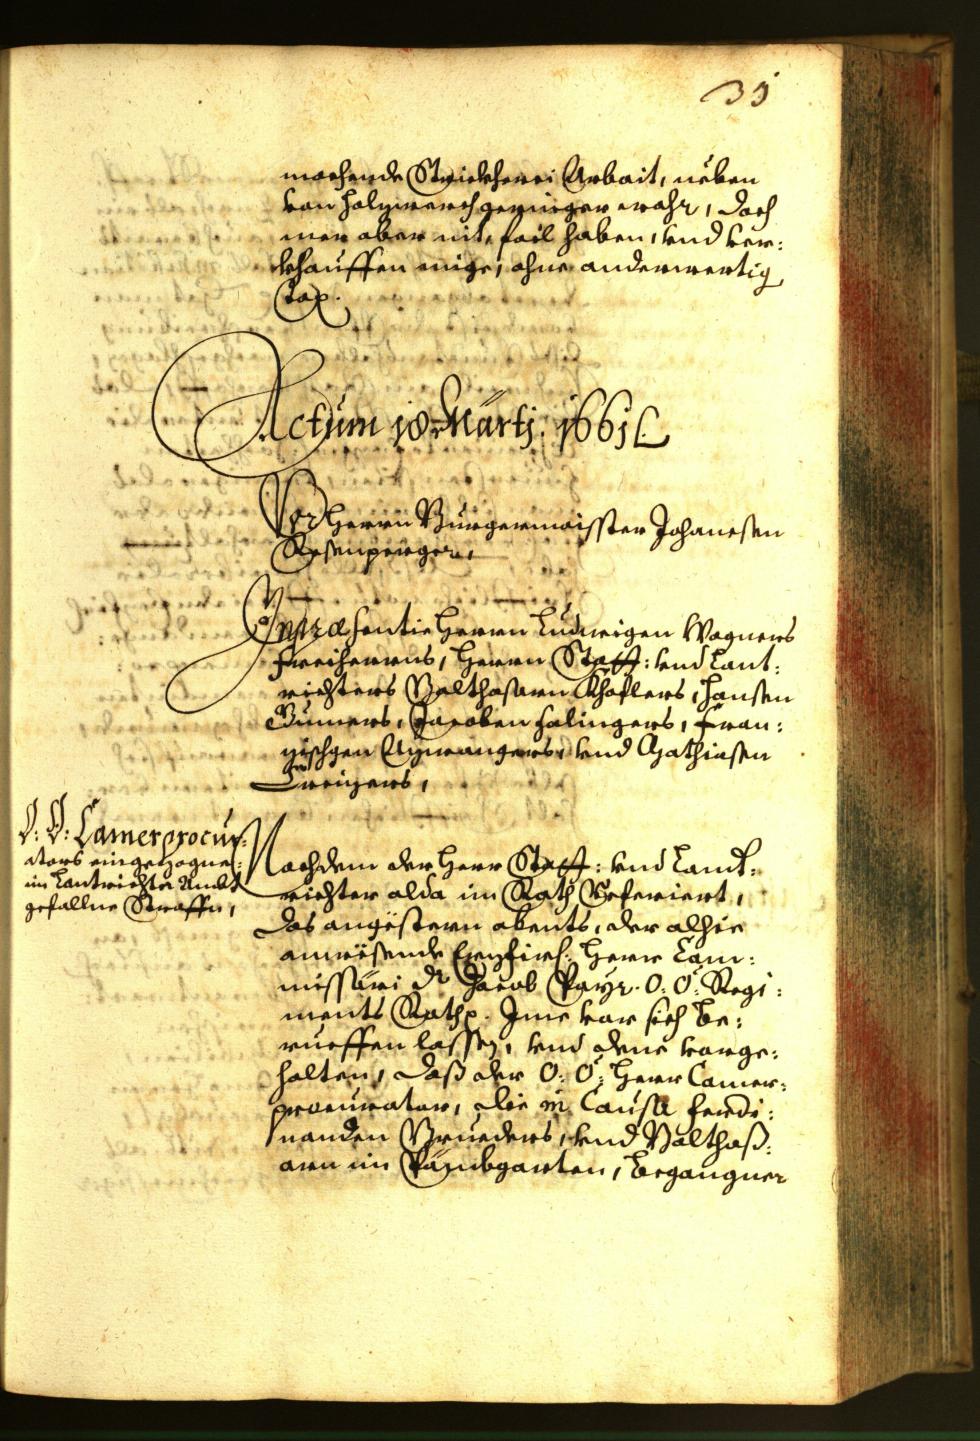 35
machende Strickherei Arbait, neben
von holzwerch geringer wahr, doch
mer aber nit, fail haben, vnd ver:
khauffen mige, ohne anderwertig
Tax.
Actum 18 Marti 1661
Vor Herrn Burgermaisster Johanesen
Resenperger,
In præsentia Herrn Ludwigen Wagners
Freiherrns, Herrn Statt: vnd Lant:
richters Balthasarn Khoflers, Hansen
Jacoben Halingers, Fran:
zischgen vnd Mathiasen
O: Ö: Camerprocur:
ators eingezogne
im Lantrichter Ambt
gefallne Straffn,
Nachdem der Herr Statt: vnd Landt:
richter alda im Rath Referiert,
das angestern abents, der alhie
anwesende Erzfirst: Herr Com:
missari Dr Jacob Payr. O: Ö: Regi:
ments Rathp. Ime vor sich be:
rueffen lassen, vnd deme vorge:
halten, daß der O: Ö: Herr Camer:
procurator, die in Causa Ferdi:
nanden vnd Balthaß:
arn im Pämbgarten, begangner